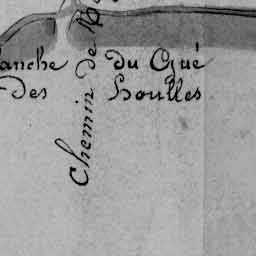 anche du Gué
des houlles
Chemin de